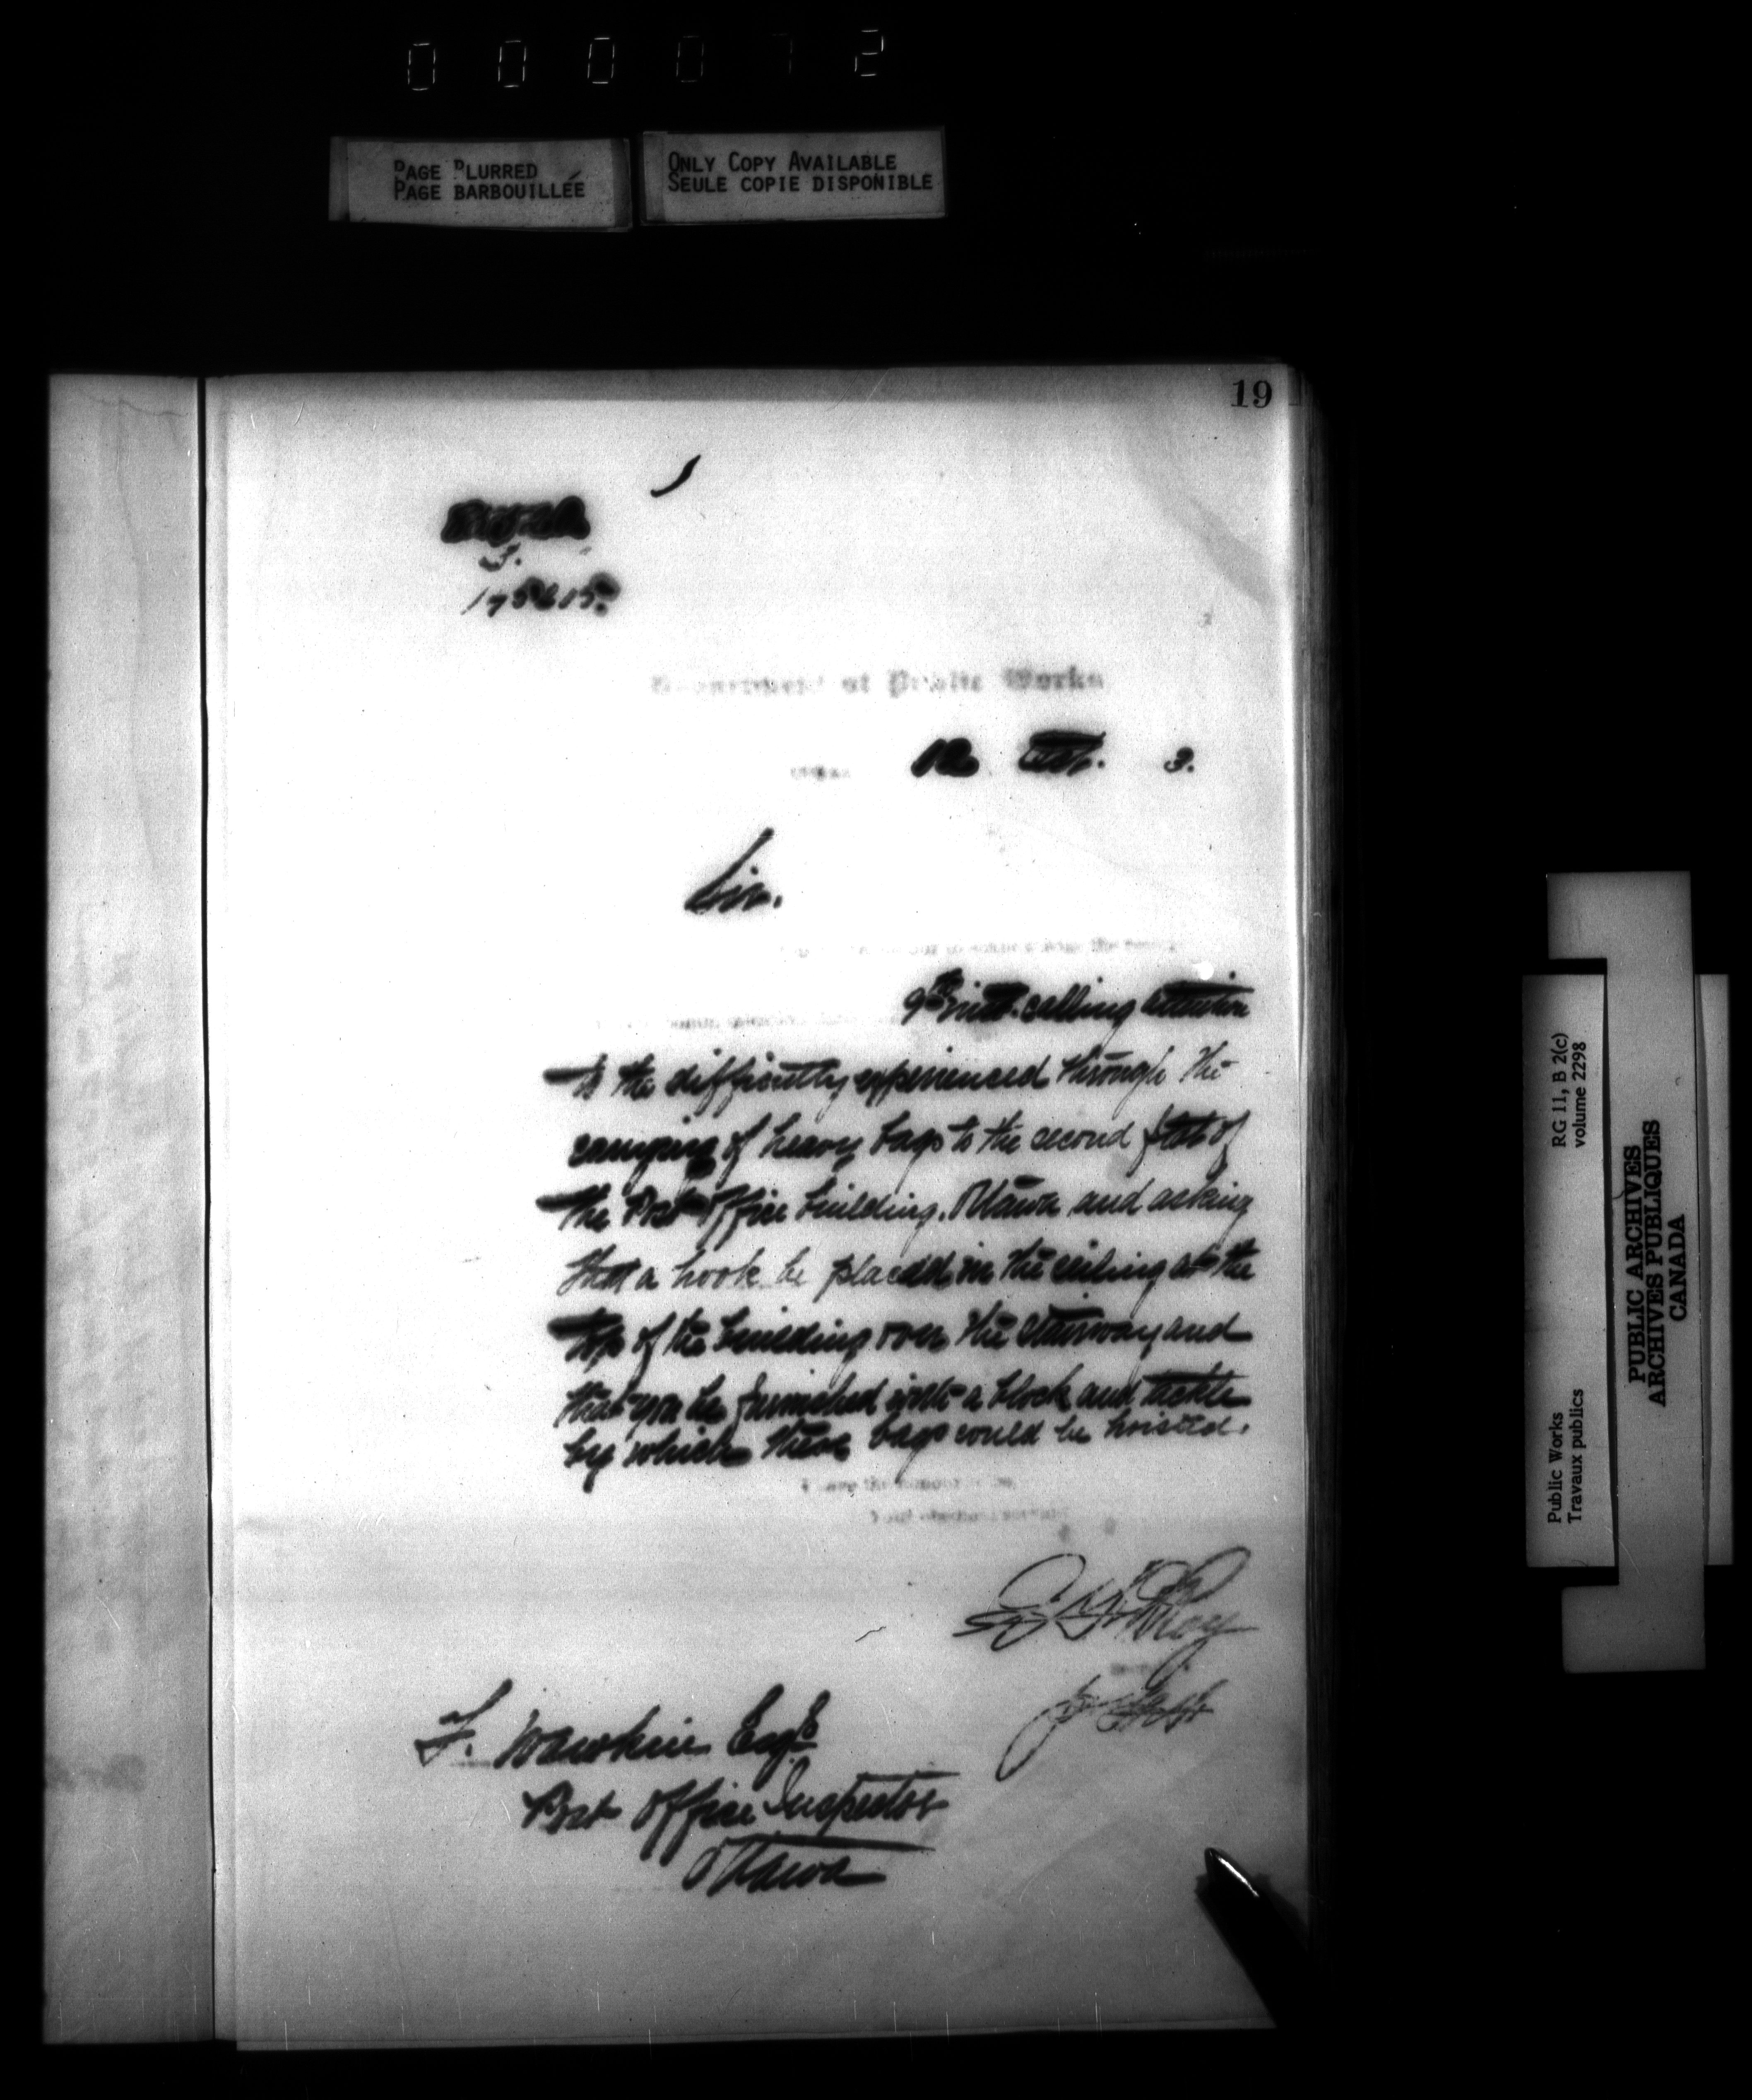 000072
PAGE BLURRED
PAGE BARBOUILLÉE
ONLY COPY AVAILABLE
SEULE COPIE DISPONIBLE
19
Department of Public Works
3.
Sir.
9th inst. calling attention
to the difficulty experienced through the
carrying of heavy bags to the second flat of
the Post Office building, Ottawa and asking
that a hook be placed in the ceiling at the
top of the building over the stairway and
that you be furnished with a block and tackle
by which these bags could be hoisted.
I have the honor to be,
Your obedient servant
Esqre
Post Office Inspector
Ottawa
RG 11, B 2(c)
volume 2298
Public Works
Travaux publics
PUBLIC ARCHIVES
ARCHIVES PUBLIQUES
CANADA